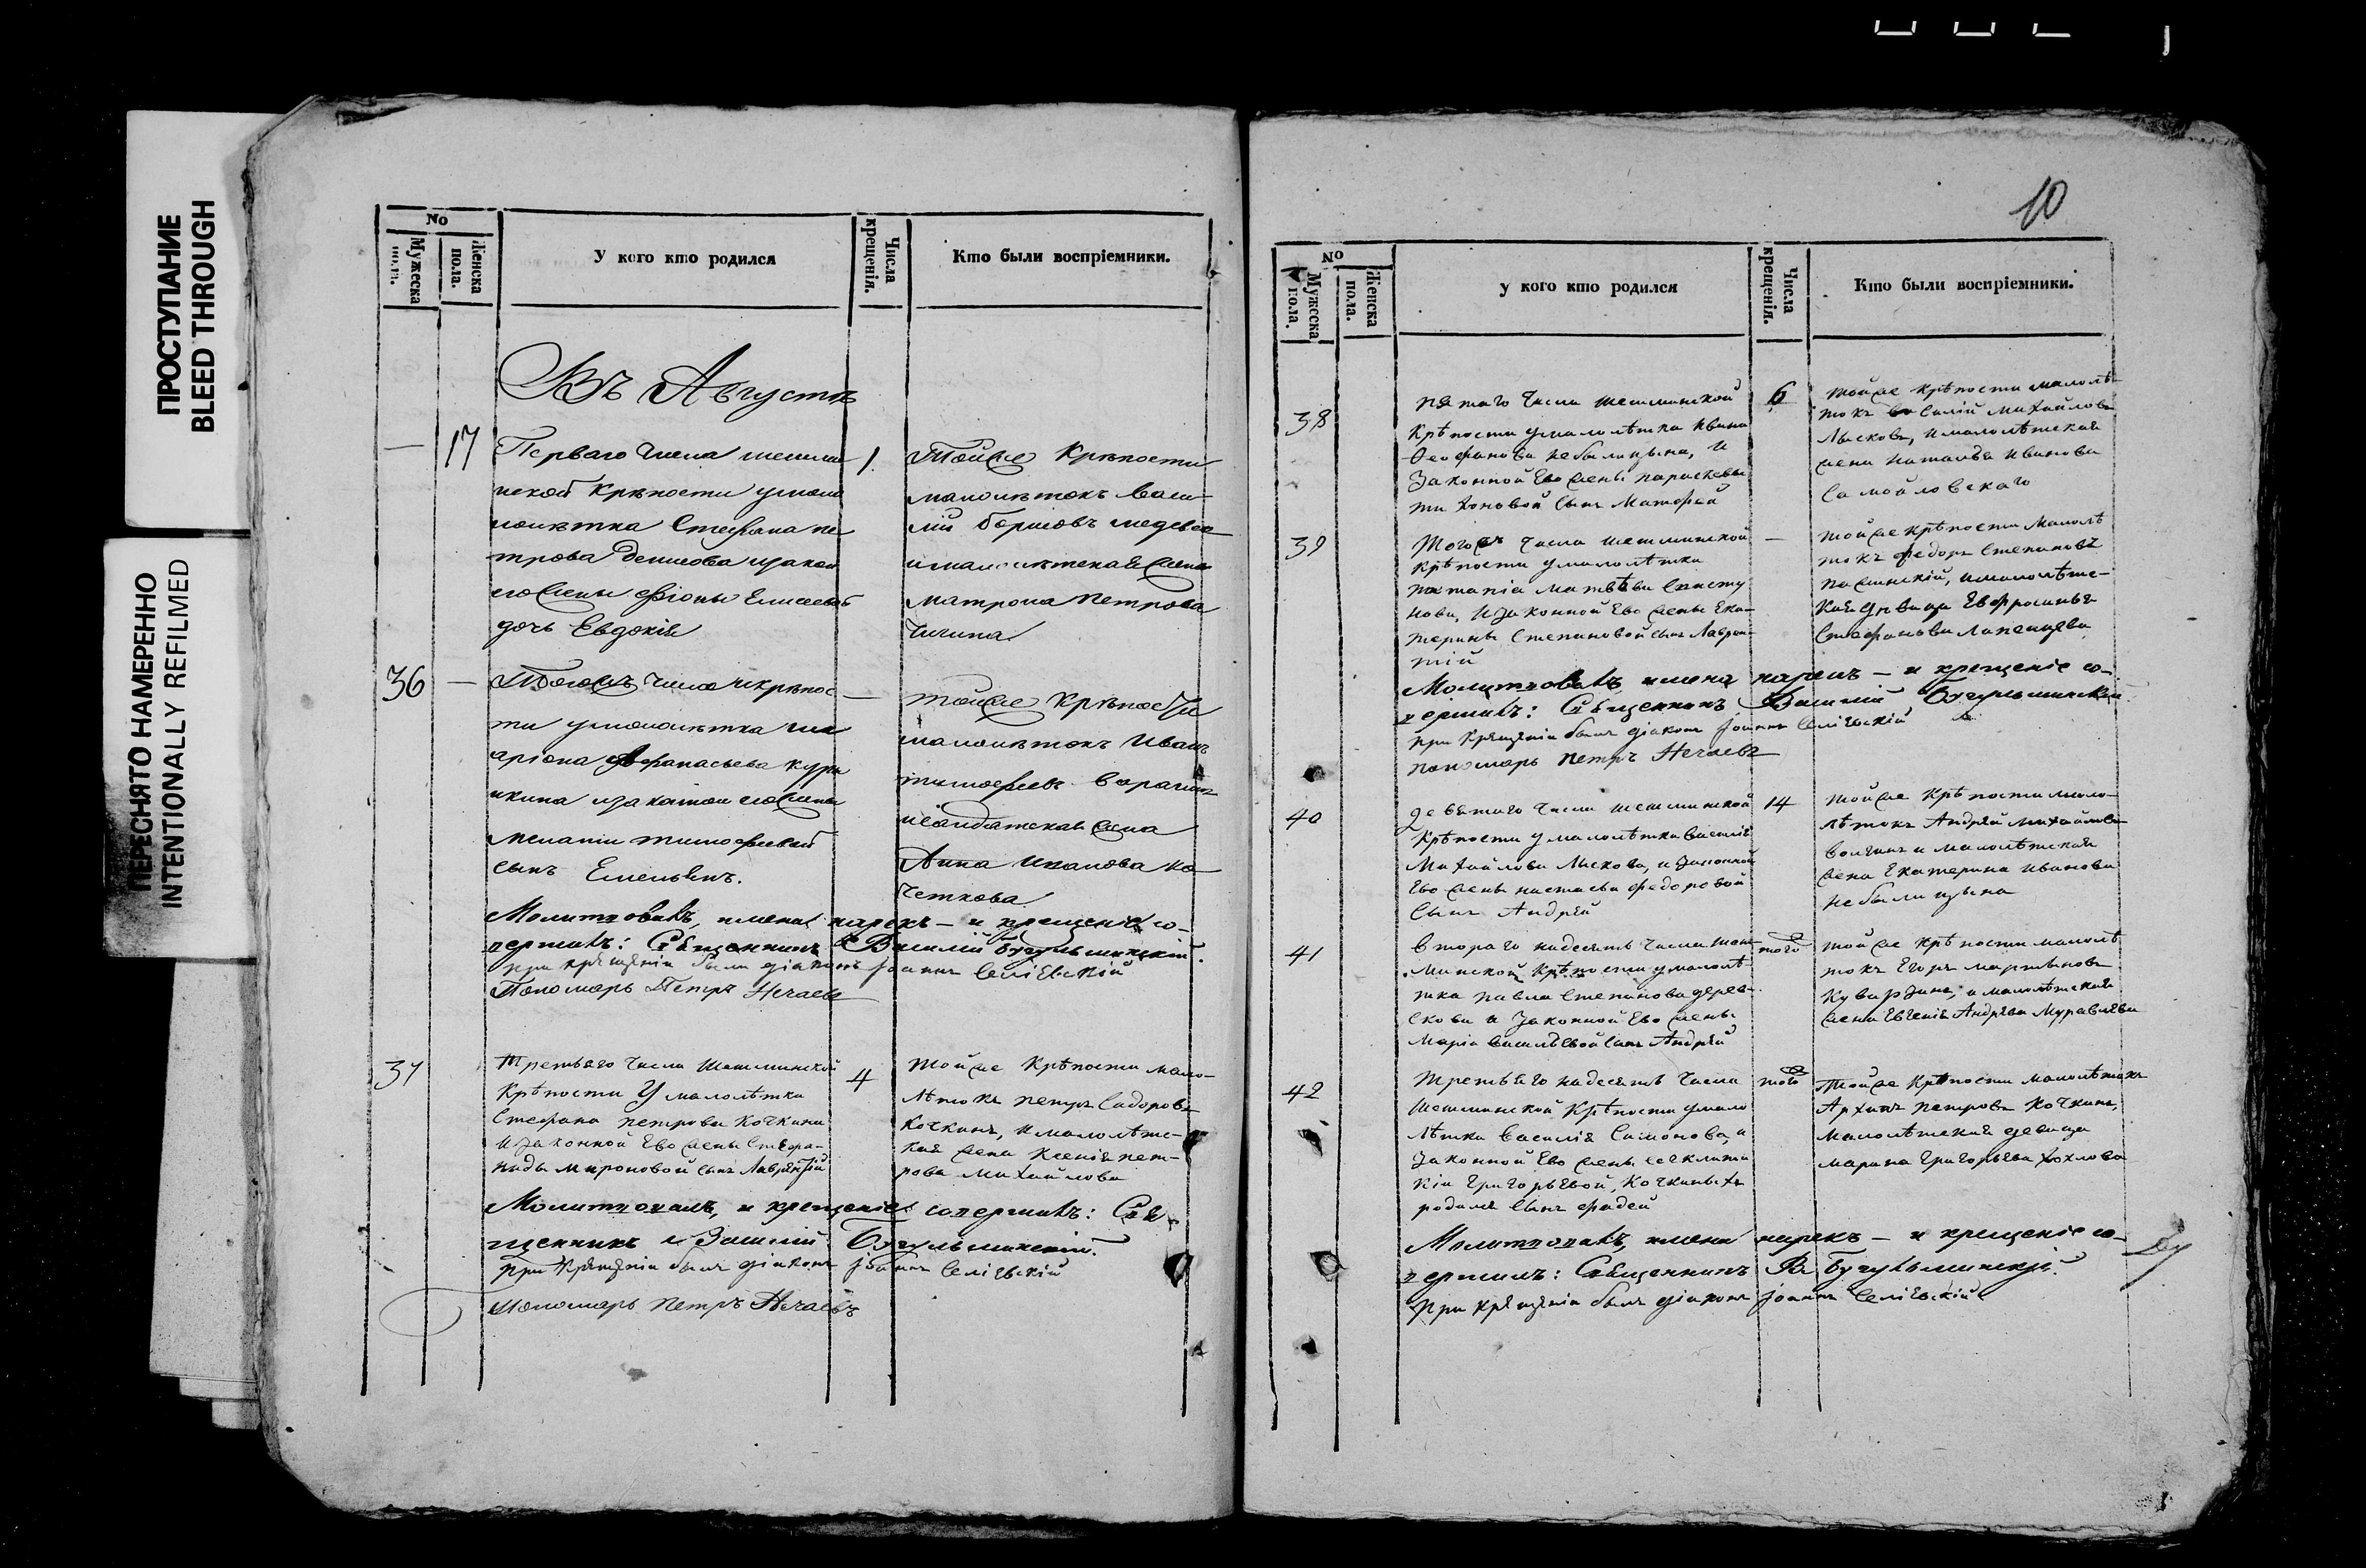 ПРОСТУПАНИЕ
BLEED THROUGH
ПЕРЕСНЯТО НАМЕРЕННО
INTENTIONALLY REFILMED
No
Мужеска пола.
Женска пола.
У кого кто родился
Числа крещенія.
Кто были воспріемники.
Въ Августѣ
17
Перваго числа шешми
нской крѣпости умало
лѣтка Стефана пе
трова Денисова изакон
егожены Фіоны Елисеевой
дочь Евдокія
1.
Тойже крѣпости
малолѣтокъ Васи
лій борисовъ
ималолѣтская жена
матрона петрова
36
Тогожъ числа икрѣпос
ти умалолѣтка ила
аріона Афанасьева кури
икина изаконой егожены
меланіи тимофеевой
сынъ Емельянъ.
тойже крѣпости
малолѣтокъ Иванъ
тимофеевъ
исолдатская жена
Анна Иванова ко
четкова
Молитвовалъ, имена нарекъ – и крещеніе со-
вершилъ: Священникъ Василій Бугульминскій.
при крещеніи былъ діаконъ Іоаннъ Селіевскій
Пономарь Петръ Нечаевъ
37
Третьяго числа Шешминской
Крѣпости У малолѣтка
Стефана петрова Кочкина
И законной Ево жены Степа-
ниды мироновой сынъ Лаврентій
4
Тойже Крѣпости мало-
лѣтокъ петръ Сидоровъ
Кочкинъ, ималолѣтс-
кая жена Ксенія пет-
рова михайлова
Молитвовалъ, и крещеніе совершилъ: Свя-
щенникъ Василій Бугульминскій.
при Крещеніи былъ діаконъ Іоаннъ Селіевскій
Пономарь Петръ Нечаевъ
10
No
Мужеска пола.
Женска пола.
у кого кто родился
Числа крещенія.
Кто были воспріемники.
38
пятаго числа шешминской
Крѣпости умалолѣтка Ивана
Феофанова небылицына, И
Законной Ево жены параскевы
тихоновой сынъ Матфей
6
тойже крѣпости малолѣ-
токъ василій михайловъ
Лысковъ, ималолѣтская
жена наталья Иванова
Самойловскаго
39
Тогожъ числа шешминской
крѣпости умалолѣтка
матвѣева
нова, и законной Ево жены Ека-
терины Степановой сынъ Лаврен-
тій
–
тойже крѣпости Малолѣ
токъ Федоръ Степановъ
ималолѣтс-
кая дѣвица Евфросинья
Стефанова
Молитвовалъ, имена нарекъ – и крещеніе со-
вершилъ: Священникъ Василій Бугульминскій.
при Крещеніи былъ діаконъ Іоаннъ Селіевскій
пономарь петръ Нечаевъ
40
девятаго числа шешминской
Крѣпости умалолѣтка василія
Михайлова Лыскова, и законной
Ево жены настасьи федоровой
Сынъ Андрей
14
тойже Крѣпости мало-
лѣтокъ Андрей михайловъ
волгинъ и малолѣтская
жена Екатерина Иванова
небылицына
41
втораго надесять числа шеш-
минской Крѣпости умалолѣ-
тка павла Степанова дерев-
скова и Законной Ево жены
Маріи васильевой сынъ Андрей
того
тойже Крѣпости малолѣ
токъ Егоръ мартыновъ
Кувардинъ, и малолѣтская
жена Евгенія Андрѣева Муравлева
42
третьяго надесять числа
Шешминской Крѣпости умало
лѣтка Василія Симонова, и
Законной Ево жены
Григорьевой, Кочкиныхъ
родился Сынъ фадей
того
Тойже Крѣпости малолѣтокъ
Архипъ петровъ Кочкинъ,
малолѣтская девица
марина григорьева хохлова
Молитвовалъ, имена нарекъ – и крещеніе со-
вершилъ: Священникъ В Бугульминскій.
При Крещеніи былъ діаконъ Іоаннъ Селіевскій